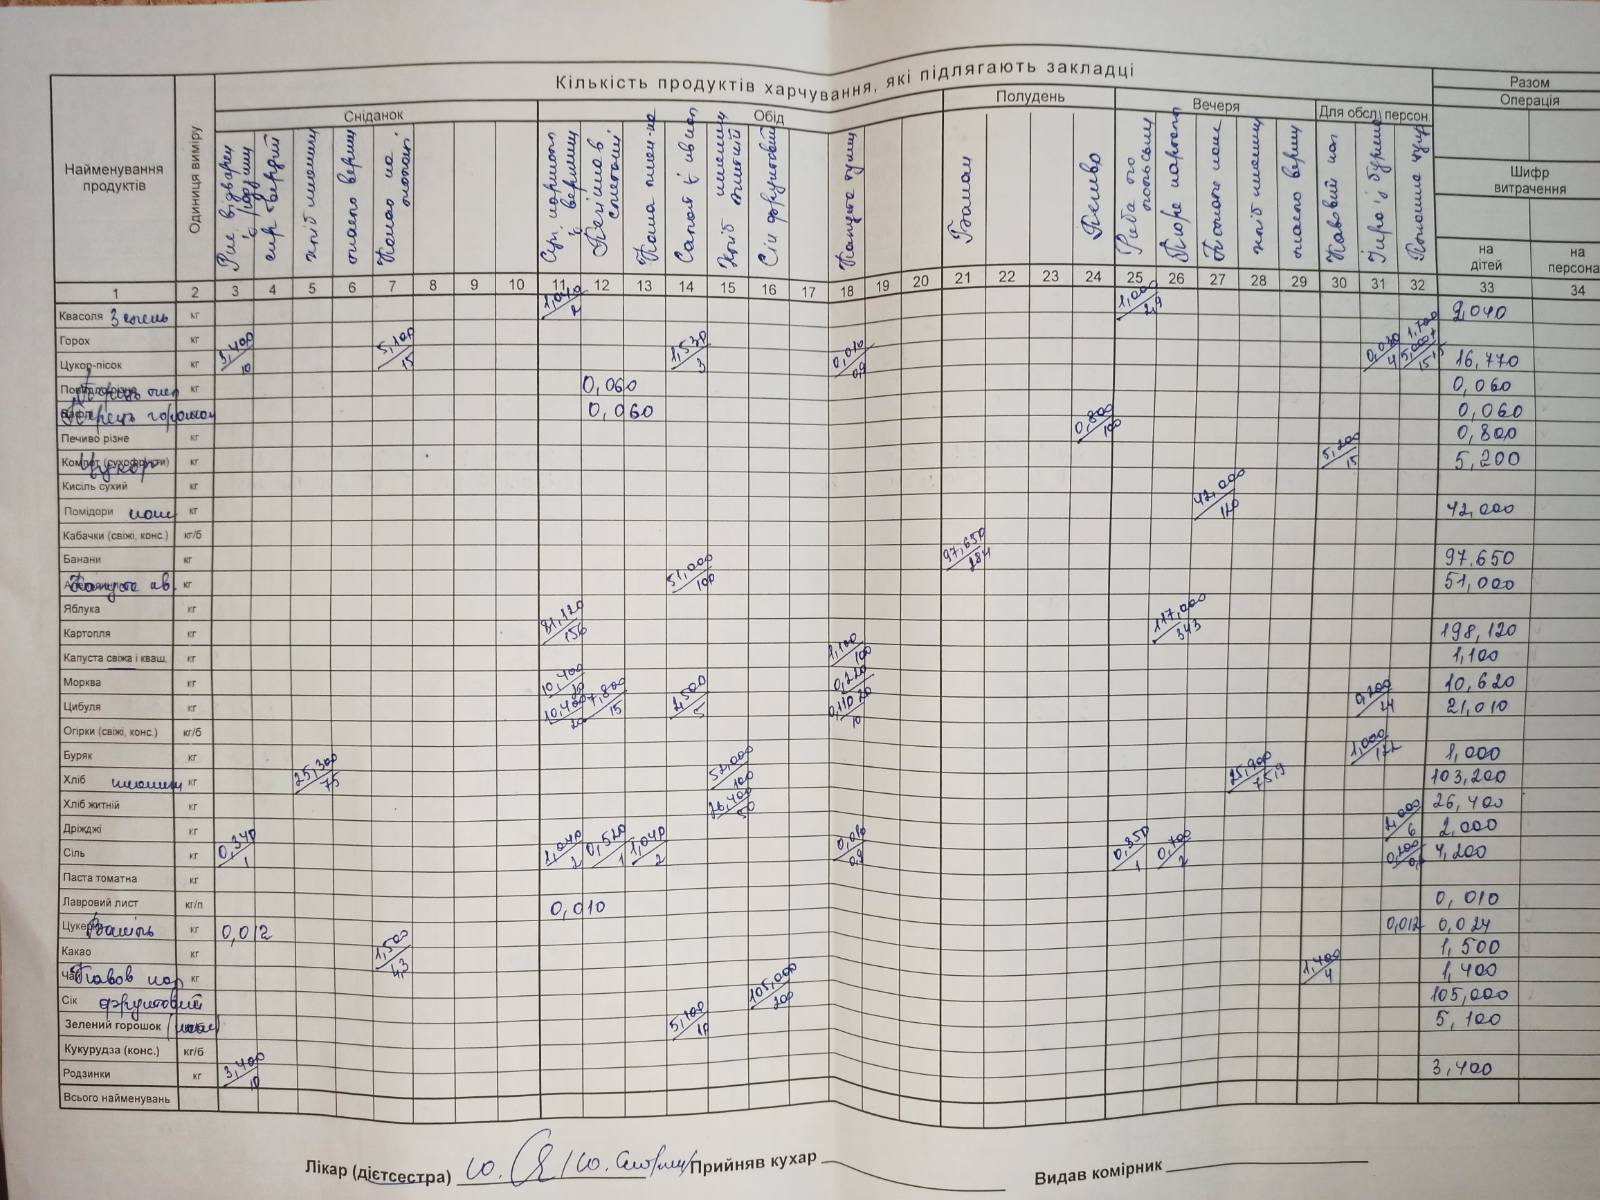 Кількість продуктів харчування, які підлягають закладці
Найменування продуктів
Одиниця виміру
Сніданок
Обід
Полудень
Вечеря
Для обсл. персон.
Разом
Операція
Шифр витрачення
на дітей
на персона
Рис відварен
сир твердий
хліб пшенич
масло верш
Какао на
Банан
Печиво
Риба по польськи
Пюре картоп
хліб пшенич
масло верш
Сік фруктовий
Капуста туш
1 2 3 4 5 6 7 8 9 10 11 12 13 14 15 16 17 18 19 20 21 22 23 24 25 26 27 28 29 30 31 32 33 34
Квасоля кг 1,040/2 1,000/2,9 2,040
Горох кг
Цукор-пісок кг 3,400/10 5,100/15 1,530/3 0,010/0,9 0,030/4 1,700 5,000/15 16,770
кг 0,060 0,060
Перець горошок 0,060 0,060
Печиво різне кг 0,800/100 0,800
Цукор кг 5,200/15 5,200
Кисіль сухий кг
Помідори кг 42,000/120 42,000
Кабачки (свіжі, конс.) кг/б
Банани кг 97,650/284 97,650
Капуста кг 51,000/100 51,000
Яблука кг
Картопля кг 81,120/156 117,000/343 198,120
Капуста свіжа і кваш. кг 1,100/100 1,100
Морква кг 10,400/20 0,220/20 10,620
Цибуля кг 10,400/20 7,800/15 2,500/5 0,110/10 0,200/24 21,010
Огірки (свіжі, конс.) кг/б
Буряк кг 1,000/122 1,000
Хліб кг 25,300/75 52,000/100 25,900/75,9 103,200
Хліб житній кг 26,400/50 26,400
Дріжджі кг 2,000/6 2,000
Сіль кг 0,340/1 1,040/2 0,520/1 1,040/2 0,010/0,9 0,350/1 0,700/2 0,200 4,200
Паста томатна кг
Лавровий лист кг/п 0,010 0,010
Ваніль кг 0,012 0,012 0,024
Какао кг 1,500/4,3 1,500
кг 1,400/4 1,400
Сік фруктовий 105,000/200 105,000
Зелений горошок 5,100/10 5,100
Кукурудза (конс.) кг/б
Родзинки кг 3,400/10 3,400
Всього найменувань
Лікар (дієтсестра) Прийняв кухар Видав комірник